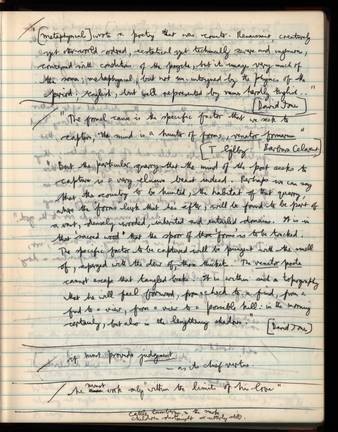 [Metaphysical] wrote a poetry that was
yet other-world-ordered, ecstatical yet technically severe and ingenious,
concerned with conditions of the psyche, but its images very much of
the soma; metaphysical, but not un-intrigued by the physics of the
period; English, but well represented by names hardly English."
[David Jones]
"The formal cause is the specific factor that we seek to
capture, the mind is a hunter of forms, venator formarum"
[T. Gilby] Barbara Celarent
"But the particular quarry that the mind of the poet seeks to
capture is a very elusive beast indeed. Perhaps we can say
that the country to be hunted, the habitat of that quarry,
where the 'forms' lurk that he's after, will be found to be part of
a vast, densely wooded, inherited and entailed domain. It is in
that 'sacred wood' that the spoor of those 'forms' is to be tracked.
The 'specific factor' to be captured will be pungent with the smell
of, asperged with the dew of, those thickets. The venator poeta
cannot escape that tangled brake. It is within such a topography
that he will feel forward, from a check to a find, from a
find to a view, from a view to a possible kill: in the morning
certainly, but also in the lengthening shadows."
[David Jones]
must provide judgment
– as its chief virtue
he must work only within the limits of his love"